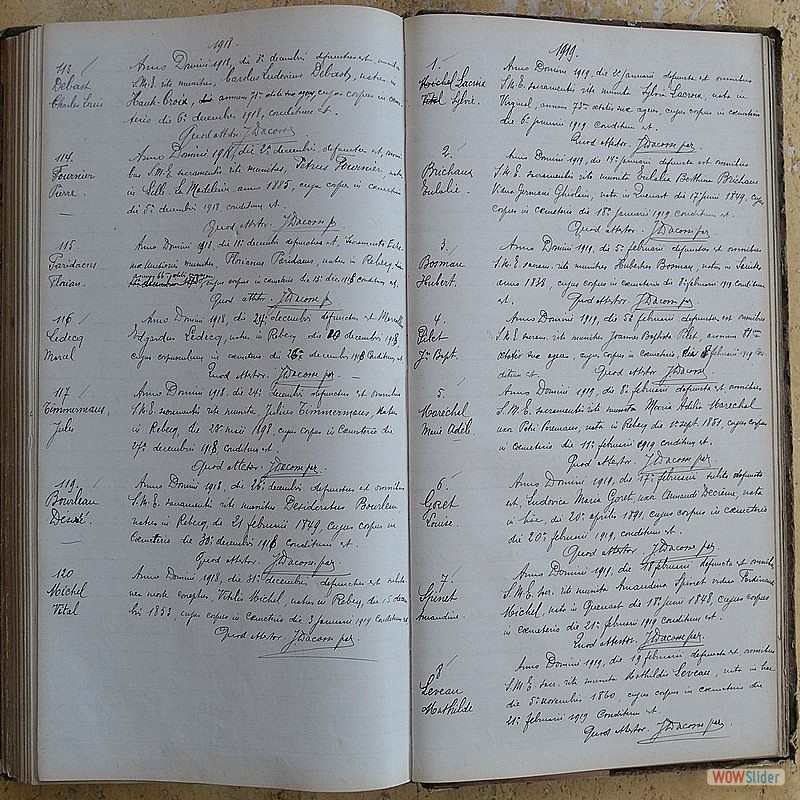 1918.
113
Debast
Charles Louis
Anno Domini 1918, die 3ª decembri defunctus est, omnibus
S.M.E. rite munitus, Carolus Ludovicus Debast, natus in
Haut-Croix, annum 71um ætatis suæ agens cujus corpus in cæme
terio die 6ª decembri 1918, conditum est.
Quod attestor. J Dacosse
114
Fournier
Pierre
Anno Domini 1918, die 2ª decembri, defunctus est, omni
bus S.M.E. sacramentis rite munitus, Petrus Fournier, natus
in La Madeleine anno 1885, cujus corpus in cæmeterio
die 5ª decembri 1918 conditum est.
Quod Attestor. J Dacosse p.
115
Paridaens
Florian.
Anno Domini 1918, die 11ª decembri defunctus est, Sacramento Extre
mæ Unctionis munitus, Florianus Paridaens natus in Rebecq,
cujus corpus in cæmeterio die 13ª dec. 1918 conditum est.
Quod attestor. J Dacosse p.
116
Ledecq
Marcel
Anno Domini 1918, die 24ª decembri defunctus est Marcellus
Edgardus Ledecq, natus in Rebecq die 20 decembri 1918,
cujus corpusculum in cæmeterio die 26ª decembri 1918 Conditum est
Quod attestor. J Dacosse per.
117
Timmermans,
Jules
Anno Domini 1918, die 24ª decembri defunctus est omnibus
S.M.E. sacramentis rite munitus, Julius Timmermans, natus
in Rebecq, die 28 maii 1898, cujus corpus in Cæmeterio die
27ª decembri 1918, conditum est.
Quod Attestor. J Dacosse per.
119.
Bourleau
Désiré.
Anno Domini 1918, die 26ª decembri defunctus est omnibus
S.M.E. sacramentis rite munitus Desideratus Bourleau
natus in Rebecq, die 21 februarii 1849, cujus corpus in
Cæmeterio die 30ª decembri 1918 conditum est.
Quod attestor. J Dacosse per.
120
Michel
Vital
Anno Domini 1918, die 31ª decembri, defunctus est subita
nea morte correptus, Vitalis Michel, natus in Rebecq, die 15 decem
bri 1853, cujus corpus in cæmeterio die 3 Januarii 1919 conditum est
Quod Attestor. J. Dacosse per.
1919.
1.
Michel Lacroix
Vital Sylvie.
Anno Domini 1919, die 2ª januarii defuncta est omnibus
S.M.E. sacramentis rite munita Sylvia Lacroix, nata in
Virginal, annum 75um ætatis suæ agens, cujus corpus in cæmeterio
die 6ª januarii 1919 Conditum est.
Quod Attestor. J Dacosse per.
2.
Brichaux
Eulalie.
Anno Domini 1919, die 14ª januarii defuncta est omnibus
S.M.E. sacramentis rite munita Eulalia Berthina Brichaux
Vidua Germani Ghislain, nata in Quenast die 17 junii 1849, cujus
corpus in cæmeterio die 18ª Januarii 1919 Conditum est.
Quod Attestor. J Dacosse per.
3.
Bosman
Hubert.
Anno Domini 1919, die 5ª februarii defunctus est omnibus
S.M.E. sacram. rite munitus Hubertus Bosman, natus in Saintes
anno 1838, cujus corpus in Cæmeterio die 8 februarii 1919 conditum
est. Quod Attestor. J Dacosse per
4.
Pilet
Jn Bapt.
Anno Domini 1919, die 5ª februarii defunctus est omnibus
S.M.E. sacram. rite munitus Joannes Baptista Pilet, annum 81um
ætatis suæ agens, cujus corpus in cæmeterio, die 8 februarii 1919 Con
ditum est. Quod Attestor. J Dacosse
5.
Maréchal
Marie Adèle.
Anno Domini 1919, die 8ª februarii defuncta est omnibus
S.M.E. sacramentis rite munita Maria Adelia Marechal
uxor Petri, nata in Rebecq die 1ª sept. 1851, cujus corpus
in cæmeterio die 11ª februarii 1919 conditum est.
Quod Attestor. J Dacosse per.
6.
Goret
Louise.
Anno Domini 1919, die 17ª februarii subito defuncta
est, Ludovica Maria Goret uxor Amandi Decrème, nata
in hac, die 20ª aprilis 1891, cujus corpus in cæmeterio
die 20ª februarii 1919 conditum est.
Quod Attestor. J Dacosse per.
7.
Spinet
Amandine.
Anno Domini 1919, die 18 februarii defuncta est omnibus
S.M.E. sac. rite munita Amandina Spinet vidua Ferdinandi
Michel, nata in Quenast die 18ª junii 1848, cujus corpus
in cæmeterio die 21ª februarii 1919 conditum est.
Quod Attestor. J Dacosse per.
8
Leveau
Mathilde
Anno Domini 1919, die 19 februarii defuncta est omnibus
S.M.E. sac. rite munita Mathildis Leveau, nata in hac
die 5ª novembris 1860, cujus corpus in cæmeterio die
21ª februarii 1919 Conditum est.
Quod Attestor. J Dacosse per.
WOWSlider